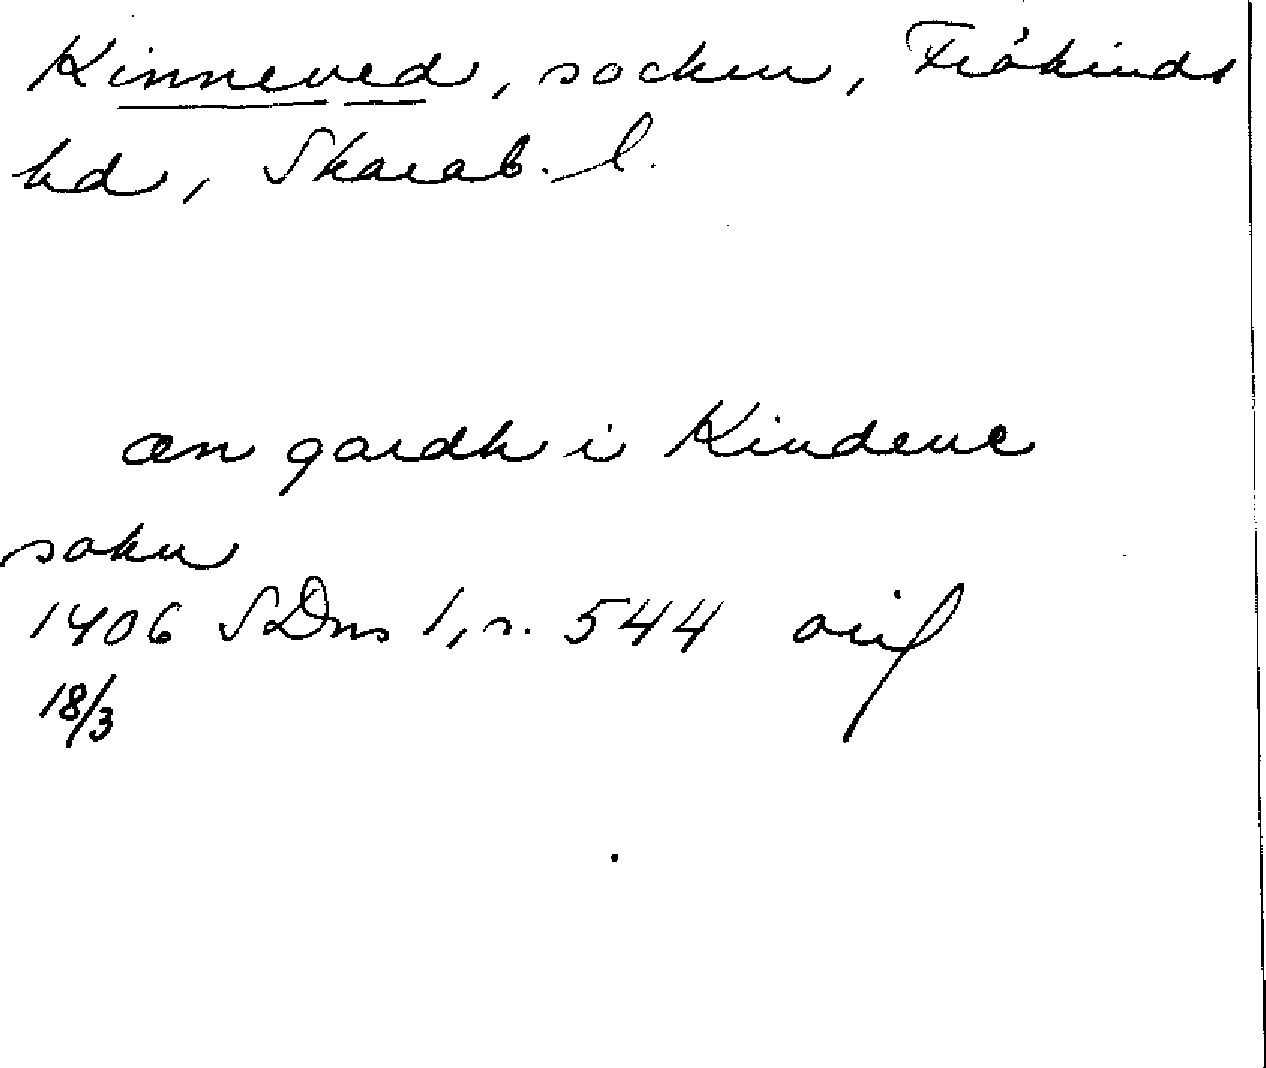 Kinneved, socken, Frökinds
hd, Skarab. l.
æn gardh i Kindeue
sokn
1406 SDns 1, s. 544 orig
18/3